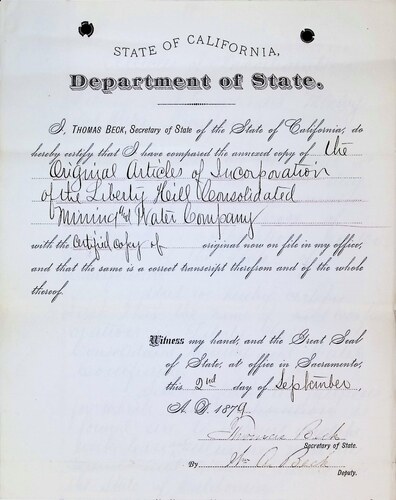 STATE OF CALIFORNIA,
Department of State.
I, THOMAS BECK, Secretary of State of the State of California, do
hereby certify that I have compared the annexed copy of the
Original Articles of Incorporation
of the Liberty Hill Consolidated
Mining and Water Company
with the Certified Copy of original now on file in my office,
and that the same is a correct transcript therefrom and of the whole
thereof.
Witness my hand, and the Great Seal
of State, at office in Sacramento,
this 2nd day of September,
A. D. 1879
Thomas Beck
Secretary of State.
By Wm. A. Beck
Deputy.